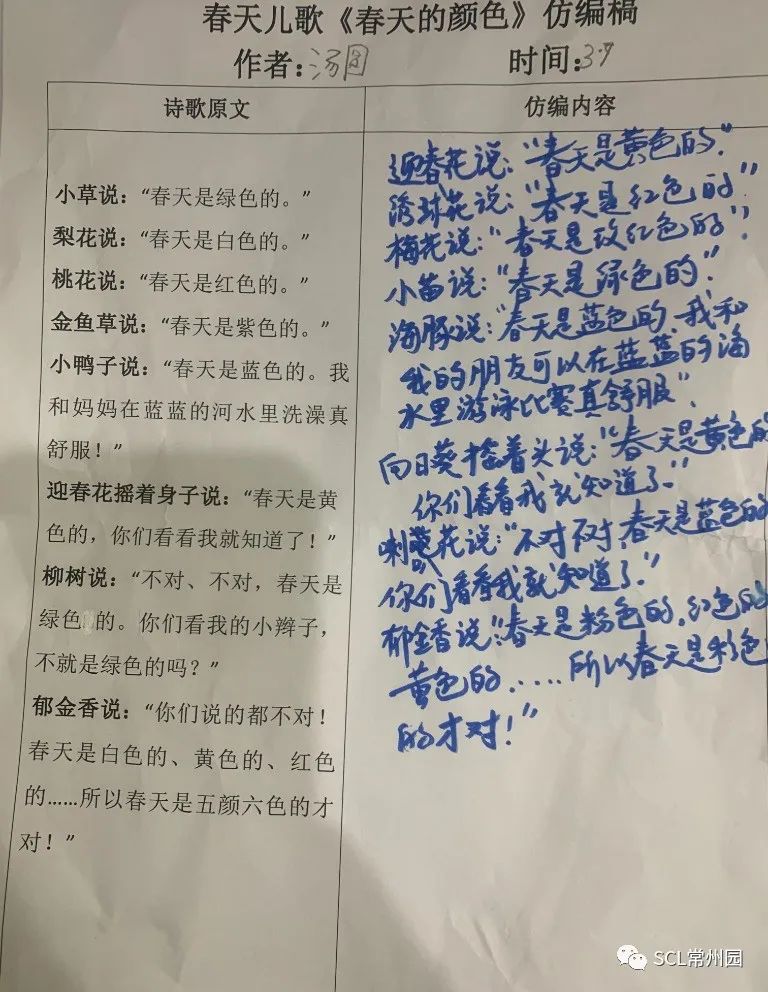 春天儿歌《春天的颜色》仿编稿
作者:汤圆
时间:3.9
诗歌原文
仿编内容
小草说：“春天是绿色的。”
梨花说：“春天是白色的。”
桃花说：“春天是红色的。”
金鱼草说：“春天是紫色的。”
小鸭子说：“春天是蓝色的。我
和妈妈在蓝蓝的河水里洗澡真
舒服！”
迎春花摇着身子说：“春天是黄
色的，你们看看我就知道了！”
柳树说：“不对、不对，春天是
绿色的。你们看我的小辫子，
不就是绿色的吗？”
郁金香说：“你们说的都不对！
春天是白色的、黄色的、红色
的……所以春天是五颜六色的才
对！”
迎春花说：“春天是黄色的.”
绣球花说：“春天是红色的”
梅花说：“春天是玫红色的”
小苗说：“春天是绿色的.”
海豚说：“春天是蓝色的.我和
我的朋友可以在蓝蓝的海
水里游泳比赛真舒服”.
向日葵摇着头说：“春天是黄色的
你们看看我就知道了.”
喇叭花说：“不对不对,春天是蓝色的
你们看看我就知道了.”
郁金香说：“春天是粉色的.红色的
黄色的......所以春天是彩色
的才对！”
SCL常州园